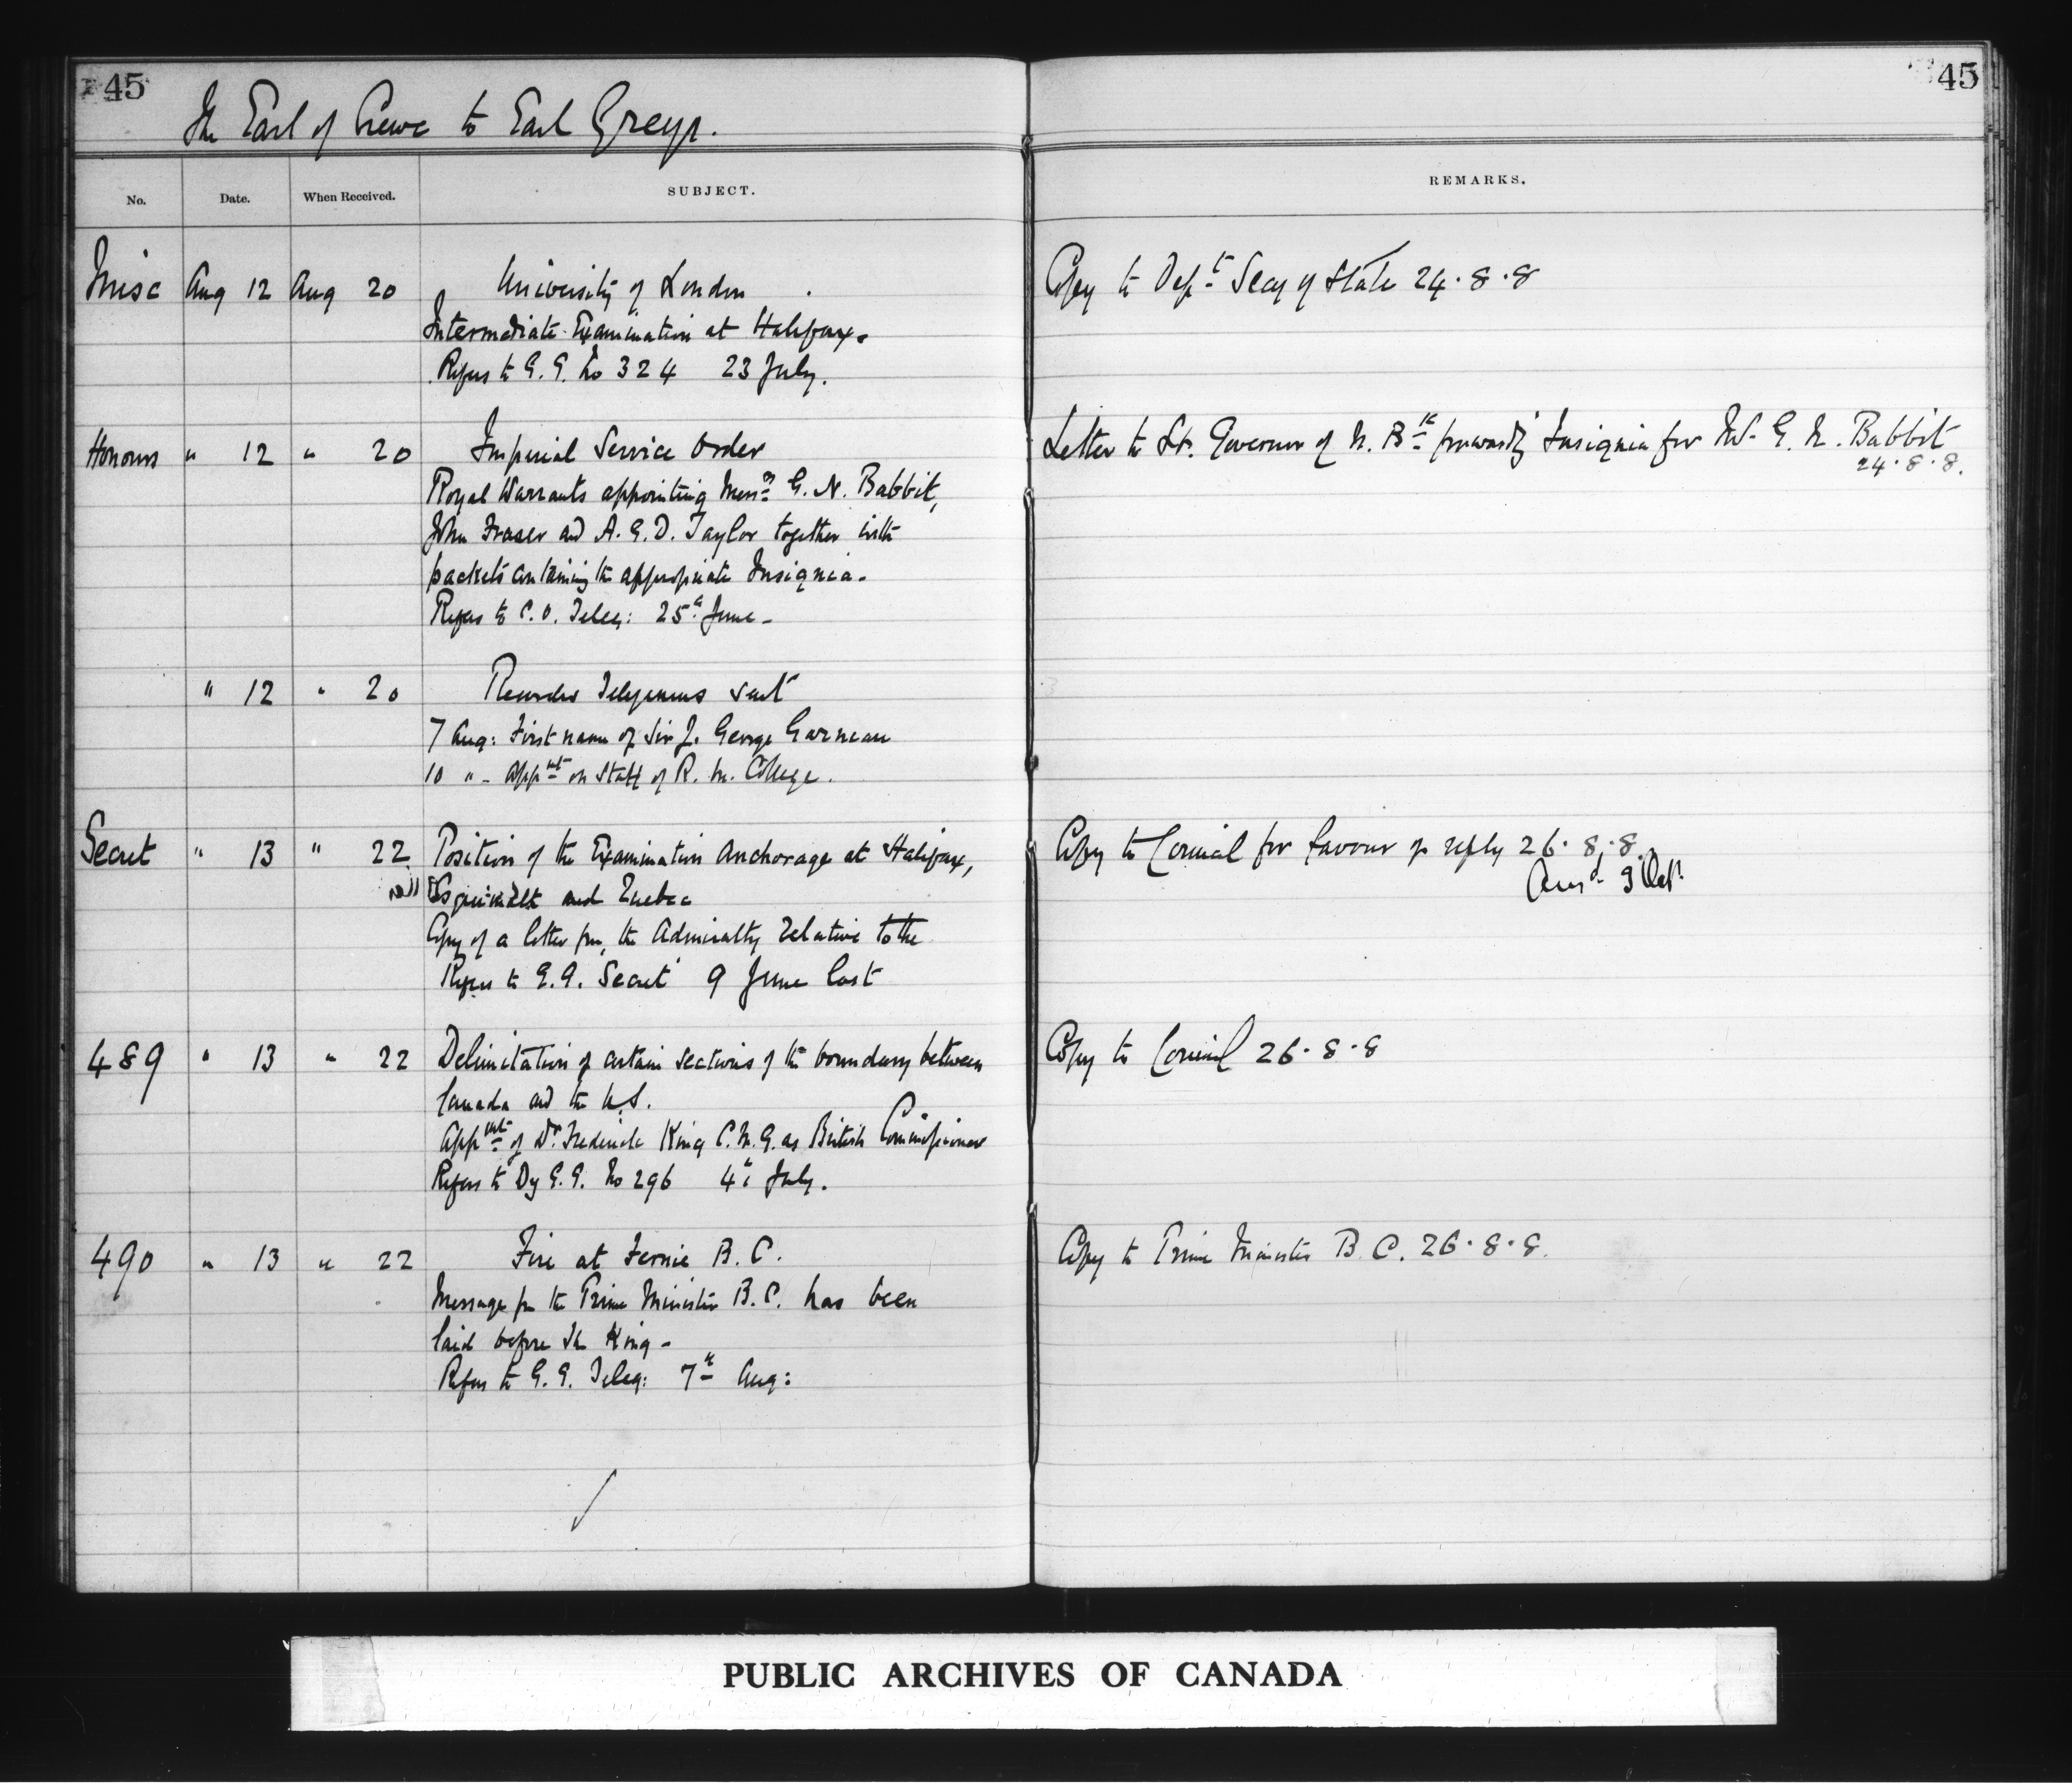 45
45
The Earl of Crewe to Earl Grey.
No. Date. When Received. SUBJECT. REMARKS.
Misc Aug 12 Aug 20 University of London Copy to Dept Secy of State 24.8.8
Intermediate Examination at Halifax.
Refers to G. G. No 324 23 July.
Honours " 12 " 20 Imperial Service Order Letter to Lt. Governor of N. Bk forwardg Insignia for Mr G. N. Babbit
24.8.8.
Royal Warrants appointing Messrs G. N. Babbit,
John Fraser and A. G. D. Taylor together with
packets containing the appropriate Insignia.
Refers to C. O. Teleg: 25th June
" 12 " 20 Records Telegrams sent
7 Aug: First name of Sir J. George Garneau
10 " - Appmt on Staff of R. M. College.
Secret " 13 " 22 Position of the Examination Anchorage at Halifax, Copy to Council for favour of reply 26.8.8.
Esquimalt and Quebec Ansd 3 Oct.
Copy of a letter fm the Admiralty relative to the
Refers to G. G. Secret 9 June last
489 " 13 " 22 Delimitation of certain sections of the boundary between Copy to Council 26.8.8
Canada and the U.S.
Appmt of Dr Frederick King C.M.G. as British Commissioner
Refers to Dy G. G. No 296 4th July.
490 " 13 " 22 Fire at Fernie B. C. Copy to Prime Minister B. C. 26.8.8.
Message fm the Prime Minister B. C. has been
laid before the King -
Refers to G. G. Teleg: 7th Aug:
PUBLIC ARCHIVES OF CANADA